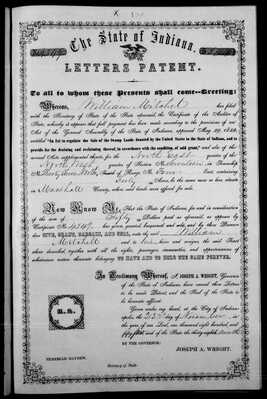 The State of Indiana.
LETTERS PATENT.
To all to whom these Presents shall come—Greeting:
Whereas, William Mitchel has filed
with the Secretary of State of the State aforesaid the Certificate of the Auditor of
State, whereby it appears that full payment has been made according to the provisions of an
Act of the General Assembly of the State of Indiana, approved May 29, 1852,
entitled "An Act to regulate the sale of the Swamp Lands donated by the United States to the State of Indiana, and to
provide for the draining and reclaiming thereof, in accordance with the condition of said grant," and also of the
several Acts supplemental thereto for the North East quarter of the
North West quarter of Section in Township
No. North of Range No. Four
Forty Acres, be the same more or less situate
in Marshall County, where said lands are offered for sale.
Now Know Ye, That the State of Indiana for and in consideration
of the sum of Fifty Dollars paid as aforesaid, as appears by
Certificate No. has given, granted, bargained and sold, and by these Presents
DOTH GIVE, GRANT, BARGAIN, AND SELL, unto the said William
Mitchell and to his heirs and assigns the said Tract
above described together with all the rights, passages, privileges, and appurtenances of
whatsoever nature thereunto belonging TO HAVE AND TO HOLD THE SAME FOREVER.
In Testimony Whereof, I, JOSEPH A. WRIGHT, Governor
of the State of Indiana have caused these Letters
to be made Patent, and the Seal of the State to
be hereunto affixed.
Given under my hand, at the City of Indianapolis,
the day of in
the year of our Lord, one thousand eight hundred, and
and of the State the thirty
BY THE GOVERNOR:
JOSEPH A. WRIGHT.
L.S.
NEHEMIAH HAYDEN,
Secretary of State.